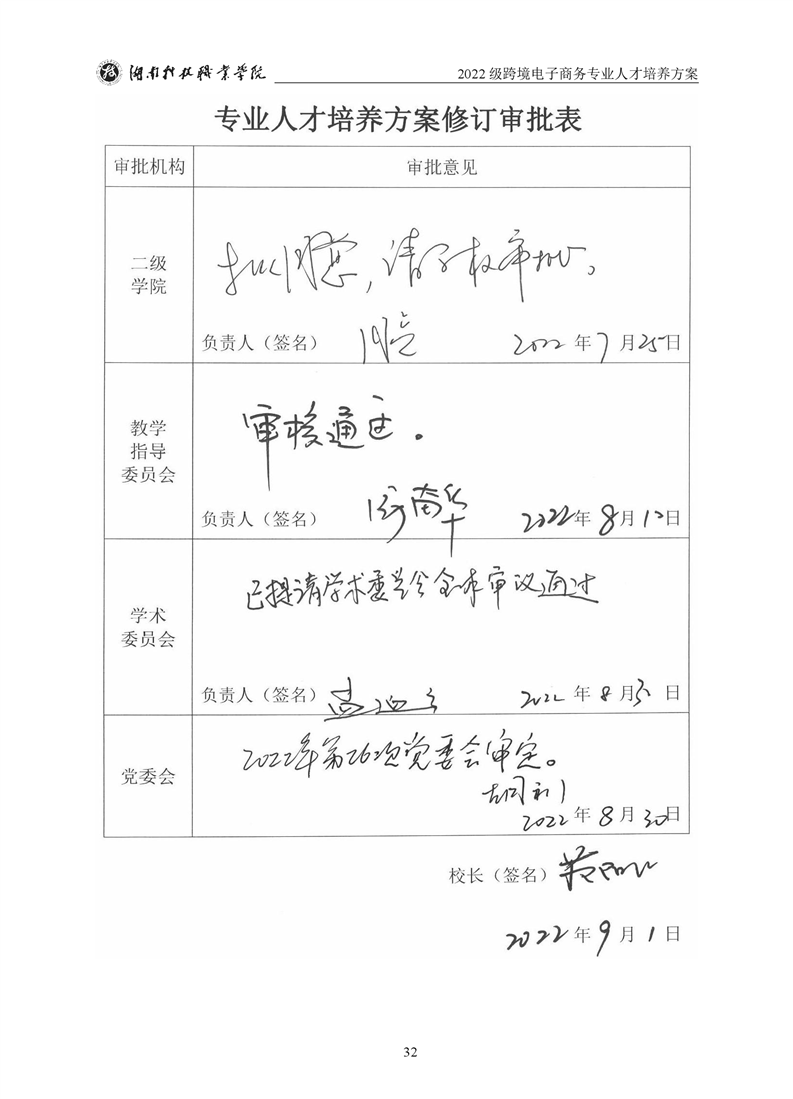 湖南科技职业学院 2022 级跨境电子商务专业人才培养方案
专业人才培养方案修订审批表
审批机构 审批意见
二级
学院
拟同意，请学校审批。
负责人（签名） 2022 年 7 月 25 日
教学
指导
委员会
审核通过。
负责人（签名） 2022 年 8 月 10 日
学术
委员会
已提请学术委员会全体审议通过
负责人（签名） 2022 年 8 月 日
党委会
2022年第26次党委会审定。
2022 年 8 月 30 日
校长（签名）
2022 年 9 月 1 日
32